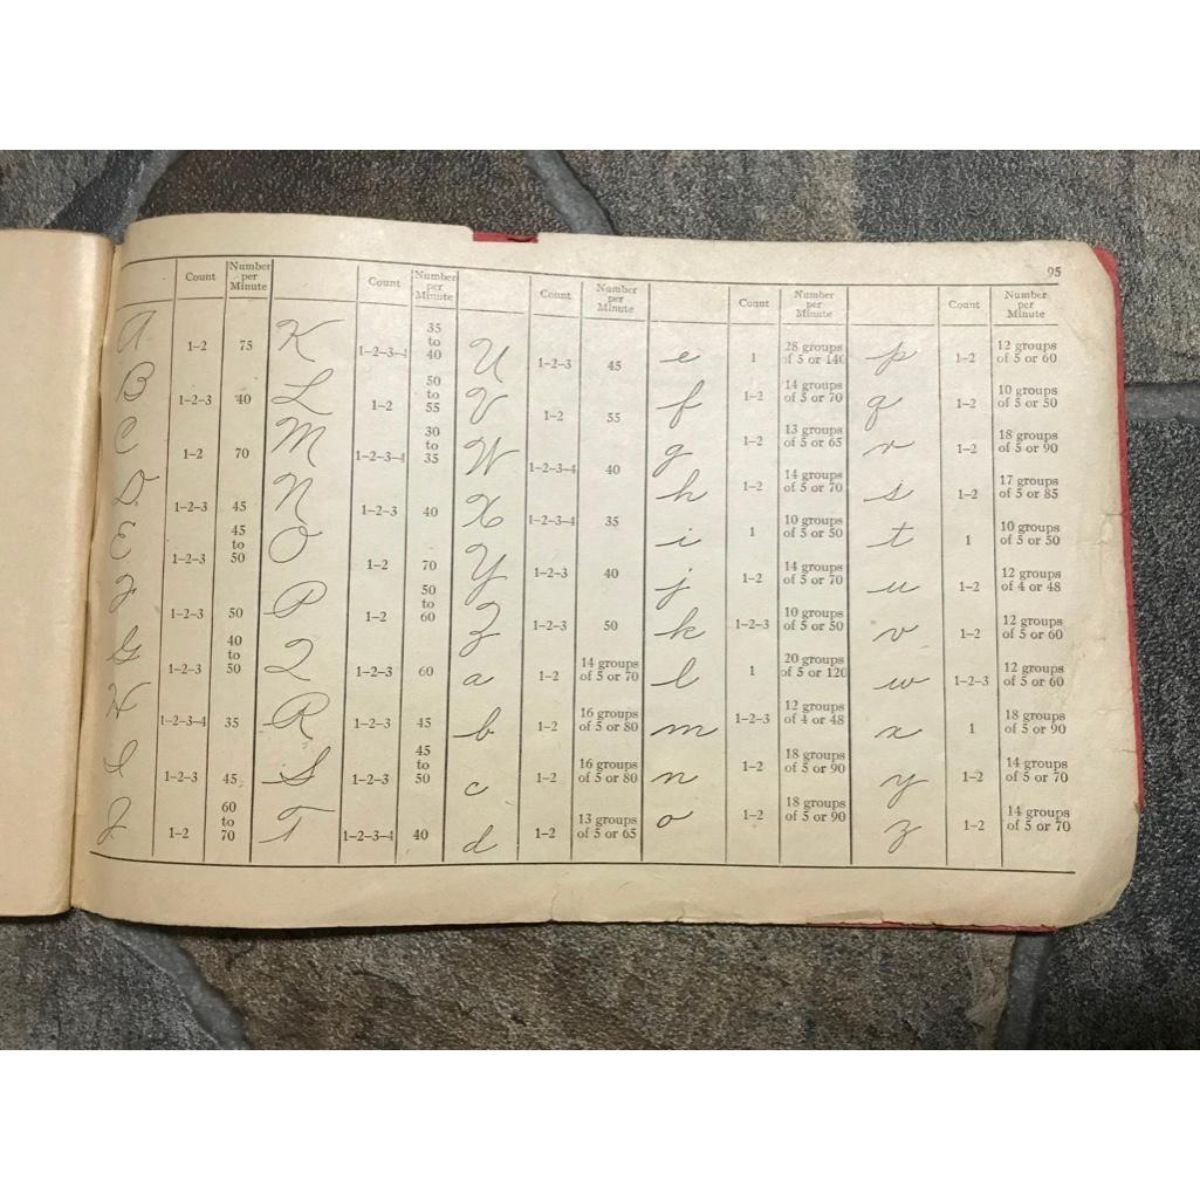 95
Count Number per Minute Count Number per Minute Count Number per Minute Count Number per Minute Count Number per Minute
A 1-2 75
B 1-2-3 40
C 1-2 70
D 1-2-3 45
E 1-2-3 45 to 50
F 1-2-3 50
G 1-2-3 40 to 50
H 1-2-3-4 35
I 1-2-3 45
J 1-2 60 to 70
K 1-2-3-4 35 to 40
L 1-2 50 to 55
M 1-2-3-4 30 to 35
N 1-2-3 40
O 1-2 70
P 1-2 50 to 60
Q 1-2-3 60
R 1-2-3 45
S 1-2-3 45 to 50
T 1-2-3-4 40
U 1-2-3 45
V 1-2 55
W 1-2-3-4 40
X 1-2-3-4 35
Y 1-2-3 40
Z 1-2-3 50
a 1-2 14 groups of 5 or 70
b 1-2 16 groups of 5 or 80
c 1-2 16 groups of 5 or 80
d 1-2 13 groups of 5 or 65
e 1 28 groups of 5 or 140
f 1-2 14 groups of 5 or 70
g 1-2 13 groups of 5 or 65
h 1-2 14 groups of 5 or 70
i 1 10 groups of 5 or 50
j 1-2 14 groups of 5 or 70
k 1-2-3 10 groups of 5 or 50
l 1 20 groups of 5 or 120
m 1-2-3 12 groups of 4 or 48
n 1-2 18 groups of 5 or 90
o 1-2 18 groups of 5 or 90
p 1-2 12 groups of 5 or 60
q 1-2 10 groups of 5 or 50
r 1-2 18 groups of 5 or 90
s 1-2 17 groups of 5 or 85
t 1 10 groups of 5 or 50
u 1-2 12 groups of 4 or 48
v 1-2 12 groups of 5 or 60
w 1-2-3 12 groups of 5 or 60
x 1 18 groups of 5 or 90
y 1-2 14 groups of 5 or 70
z 1-2 14 groups of 5 or 70